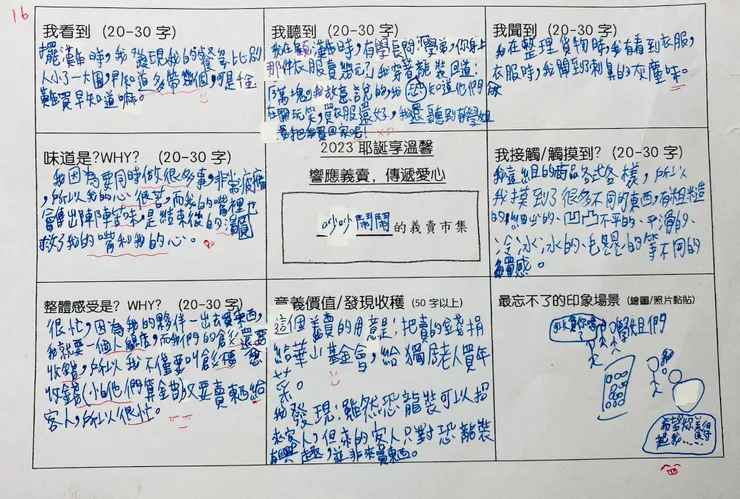 16
我看到 (20-30 字)
擺攤時,我發現我的餐盤比別
人小了一大圈,早知道多帶幾個,可是千金
難買早知道嘛。
我聽到 (20-30 字)
我在顧攤時,有學長問:學弟,你身上
那件衣服賣幾元?我穿著龍裝回道:
我知道他們
在開玩笑,買衣服還好,我還聽到有學姐
要把我買回家呢!
我聞到 (20-30 字)
我在整理貨物時,我有看到衣服,
衣服時,我聞到了刺鼻的灰塵味。
味道是?WHY? (20-30 字)
我因為要同時做很多事,非常疲憊,
所以我的心很苦,而我的嘴裡也
會傳出陣陣苦味,是結束後的湯圓
救了我的嘴和我的心。
2023 耶誕享溫馨
響應義賣,傳遞愛心
吵吵鬧鬧的義賣市集
我接觸/觸摸到? (20-30 字)
我這組的商品各式各樣,所以
我摸到了很多不同的東西,有粗糙
的、凹凸不平的、平滑的、
冷冰冰的、等不同的
觸感。
整體感受是? WHY? (20-30 字)
很忙,因為我的夥伴一出去買東西,
我就要一個人顧店,而我們的還要
收錢,所以我不僅要叫還
收錢(怕他們算金額)又要賣東西給
客人,所以很忙。
意義價值/發現收穫 (50 字以上)
這個義賣的用意是:把賣的錢捐
給華山基金會,給獨居老人買年
菜。
我發現:雖然恐龍裝可以招
來客人,但來的客人只對恐龍裝
有興趣,並非來買東西。
最忘不了的印象場景 (繪圖/照片黏貼)
學姐們